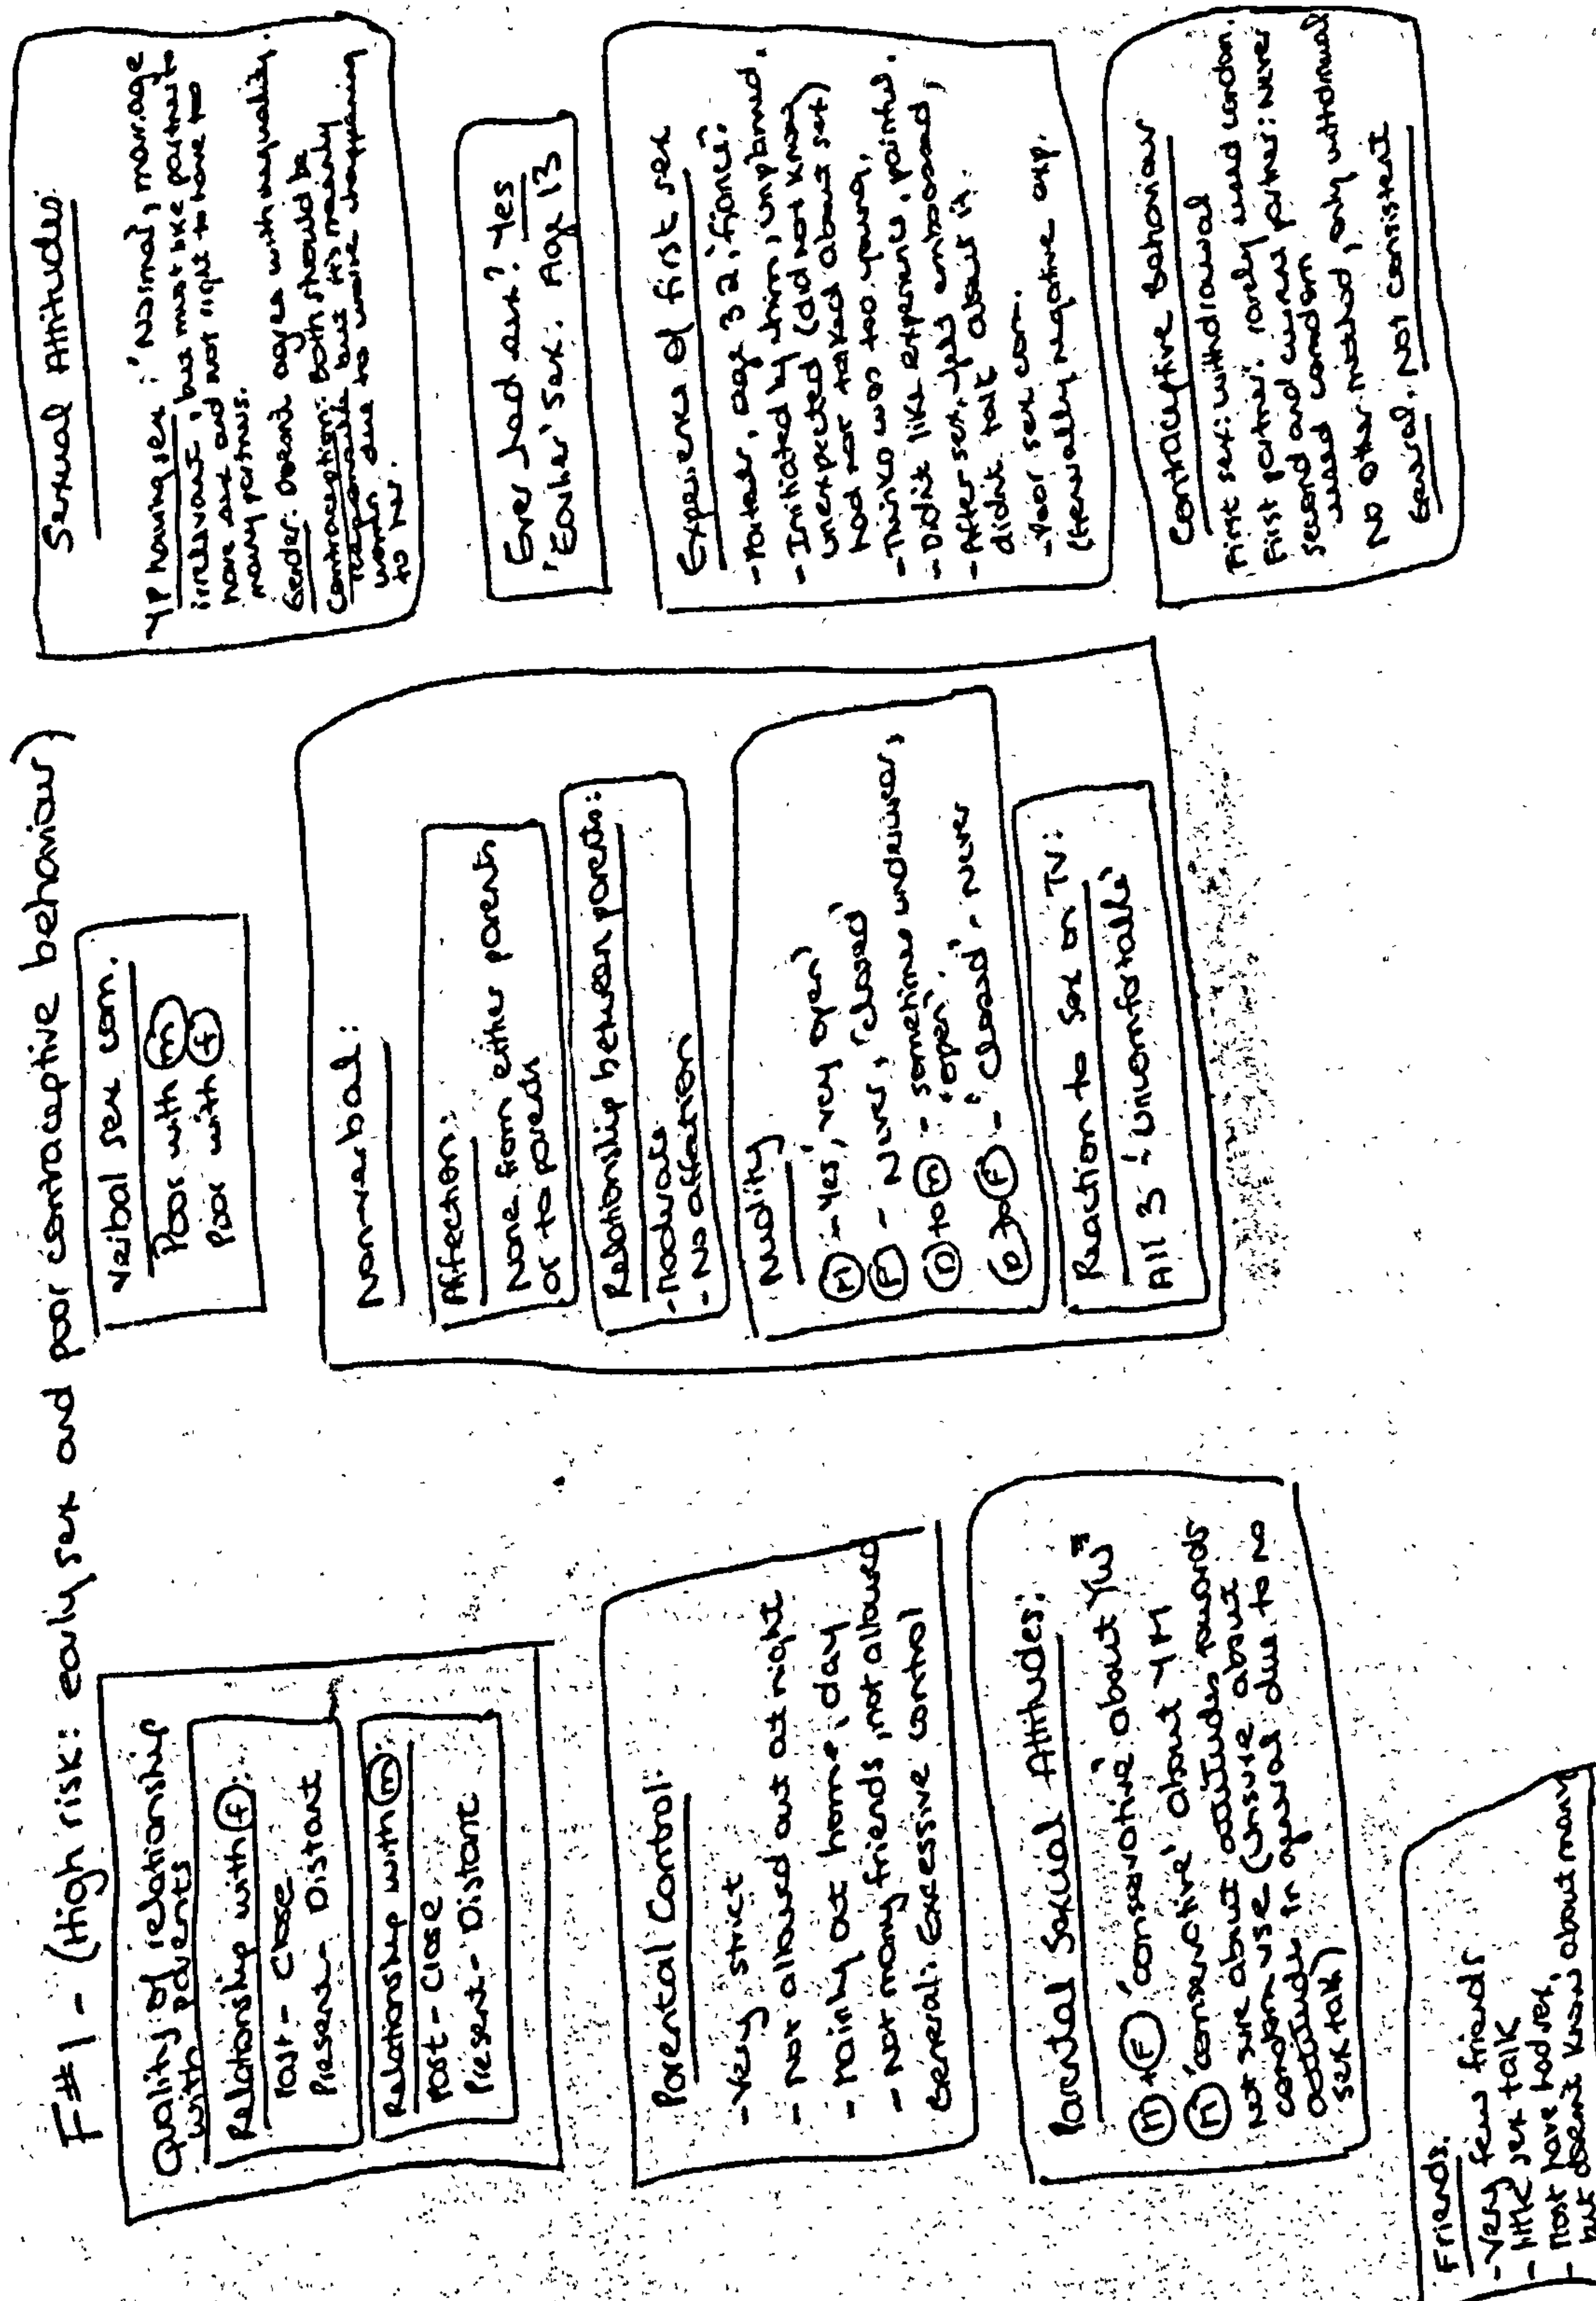 F#1 - (High risk: early sex and poor contraceptive behaviour)
Quality of relationship
with parents
Relationship with (f):
Past - Close
Present - Distant
Relationship with (m):
Past - Close
Present - Distant
Parental Control:
- Very strict
- Not allowed out at night
- Mainly at home, day
- Not many friends, not allowed
General: Excessive control
Parental Sexual Attitudes:
(M)+(F) 'conservative' about YW
(M) 'conservative' about YM
Not sure about attitudes towards
condom use (unsure about
attitude in general due to no
sex talk)
Friends:
- Very few friends
- little sex talk
- Most have had sex,
but doesnt know about many
Verbal sex com.
Poor with (m)
Poor with (f)
Non-verbal:
Affection:
None from either parents
or to parents
Relationship between parents:
- Moderate
- No affection
Nudity
(M) - 'Yes', 'very open'
(F) - Never, 'closed'
(D) to (M) - sometimes underwear,
'open'.
(D) to (F) - 'closed' - never
Reaction to sex on TV:
All 3 'uncomfortable'
Sexual Attitudes
YP having sex: 'Normal', marriage
irrelevant, but must like partner to
have sex and not right to have to
many partners.
Gender: Doesnt agree with inequality.
Contraception: Both should be
responsible but its mainly
woman due to worse happening
to her.
Ever had sex? Yes
'Earlier' Sex: Age 13
Experience of first sex
- Partner, age 32, 'fiance'.
- Initiated by him, unplanned,
unexpected (did not know,
had not talked about sex)
- Thinks was too young,
- Didnt like experience, painful.
- After sex, felt embarassed,
didnt talk about it.
- Poor sex com.
(Generally negative exp.
Contraceptive Behaviour
First sex: withdrawal
First partner: rarely used condom.
Second and current partner: Never
used condom
No other method, only withdrawal
General, Not consistent